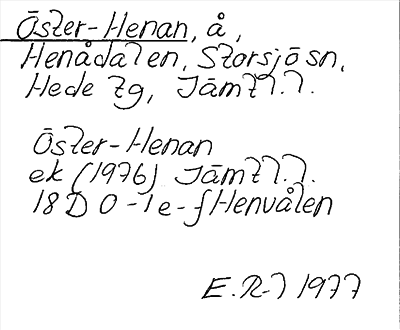 Öster-Henan, å,
Henådalen, Storsjö sn,
Hede tg, Jämtl.l.
Öster-Henan
ek (1976) Jämtl.l.
18D 0-1 e-f Henvålen
E.R-l 1977